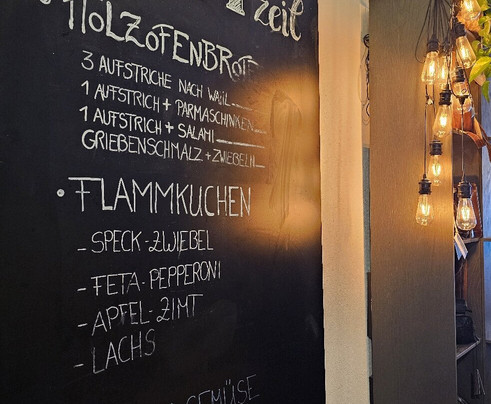 zeit
HOLZOFENBROTE
3 AUFSTRICHE NACH WAHL
1 AUFSTRICH + PARMASCHINKEN
1 AUFSTRICH + SALAMI
GRIEBENSCHMALZ + ZWIEBELN
• FLAMMKUCHEN
- SPECK-ZWIEBEL
- FETA-PEPPERONI
- APFEL-ZIMT
- LACHS
GEMÜSE